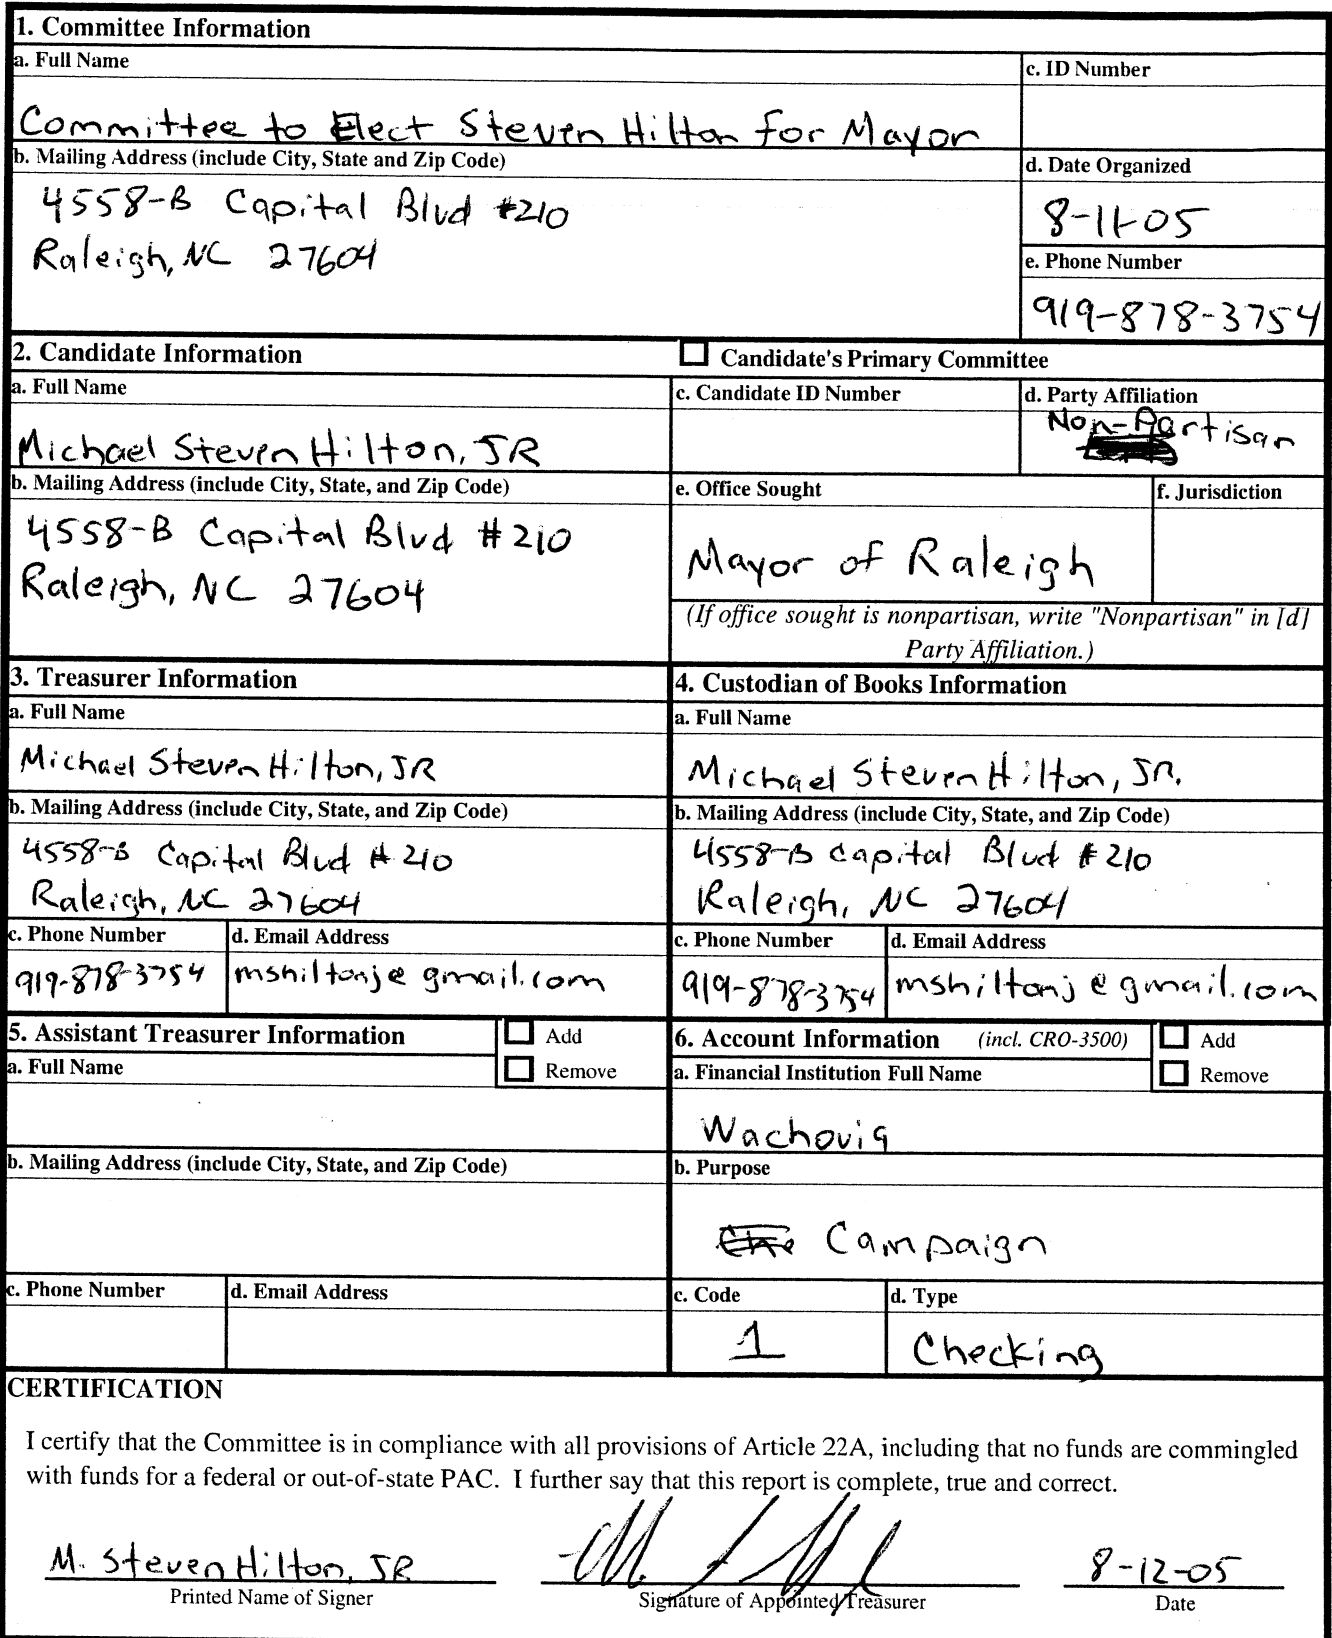 1. Committee Information
a. Full Name
c. ID Number
Committee to Elect Steven Hilton for Mayor
b. Mailing Address (include City, State and Zip Code)
d. Date Organized
4558-B Capital Blvd #210
Raleigh, NC 27604
8-11-05
e. Phone Number
919-878-3754
2. Candidate Information
Candidate's Primary Committee
a. Full Name
c. Candidate ID Number
d. Party Affiliation
Michael Steven Hilton, JR
Non-Partisan
b. Mailing Address (include City, State, and Zip Code)
e. Office Sought
f. Jurisdiction
4558-B Capital Blvd #210
Raleigh, NC 27604
Mayor of Raleigh
(If office sought is nonpartisan, write "Nonpartisan" in [d]
Party Affiliation.)
3. Treasurer Information
a. Full Name
Michael Steven Hilton, JR
b. Mailing Address (include City, State, and Zip Code)
4558-B Capital Blvd #210
Raleigh, NC 27604
c. Phone Number
d. Email Address
919-878-3754
mshiltonj@gmail.com
4. Custodian of Books Information
a. Full Name
Michael Steven Hilton, JR.
b. Mailing Address (include City, State, and Zip Code)
4558-B Capital Blvd #210
Raleigh, NC 27604
c. Phone Number
d. Email Address
919-878-3754
mshiltonj@gmail.com
5. Assistant Treasurer Information
Add
Remove
a. Full Name
b. Mailing Address (include City, State, and Zip Code)
c. Phone Number
d. Email Address
6. Account Information (incl. CRO-3500)
Add
Remove
a. Financial Institution Full Name
Wachovia
b. Purpose
Campaign
c. Code
d. Type
1
Checking
CERTIFICATION
I certify that the Committee is in compliance with all provisions of Article 22A, including that no funds are commingled
with funds for a federal or out-of-state PAC. I further say that this report is complete, true and correct.
M. Steven Hilton, JR
8-12-05
Printed Name of Signer
Signature of Appointed Treasurer
Date